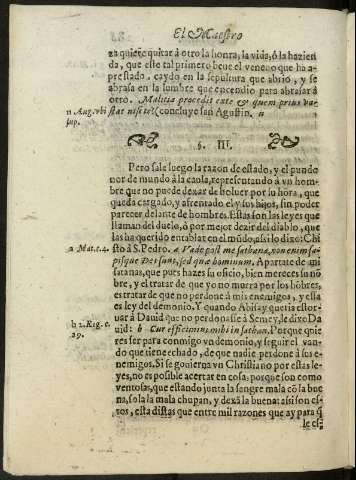 El Maestro
za quiere quitar á otro la honra, la vida, ó la hazien
da, que este tal primero beue el veneno que ha a-
prestado, caydo en la sepultura que abrio, y se
abrasa en la lumbre que encendio para abrasar á
otro. Malitia procedit ex te & quem prius va-
n Aug. vbi stat nisi te? concluye san Agustin. n
sup.
§. III.
Pero sale luego la razon de estado, y el pundo
nor de mundo à la caola, representando á vn hom-
bre que no puede dexar de boluer por su hora, que
queda cargado, y afrentado el y sus hijos, sin poder
parecer delante de hombres. Estas son las leyes que
llaman del duelo, ó por mejor dezir del diablo, que
las ha querido entablar en el mūdo, assi lo dize Chri
a Mat. c. 4. sto à S. Pedro. a Vade post me sathana, non enim sa-
pis quæ Dei sunt, sed quæ hominum. Apartate de mi
satanas, que pues hazes su oficio, bien mereces su nō
bre, y el tratar de que yo no murra por los hōbres,
es tratar de que no perdone à mis enemigos, y essa
es ley del demonio. Y quando Abisay queria estor-
uar à Dauid que no perdonasse à Semey, le dize Da
b 2. Reg. c. uid: b Cur efficimini mihi in sathan. Porque quie
29.
res ser para conmigo vn demonio, y seguir el van-
do que tiene echado, de que nadie perdone à sus e-
nemigos. Si se gouierna vn Christiano por estas le-
yes, no es posible acertar en cosa: porque son como
ventosas, que estando junta la sangre mala cō la bue
na, sola la mala chupan, y dexā la buena: assi son es-
tos, estadistas que entre mil razones que ay para q̄
le es-